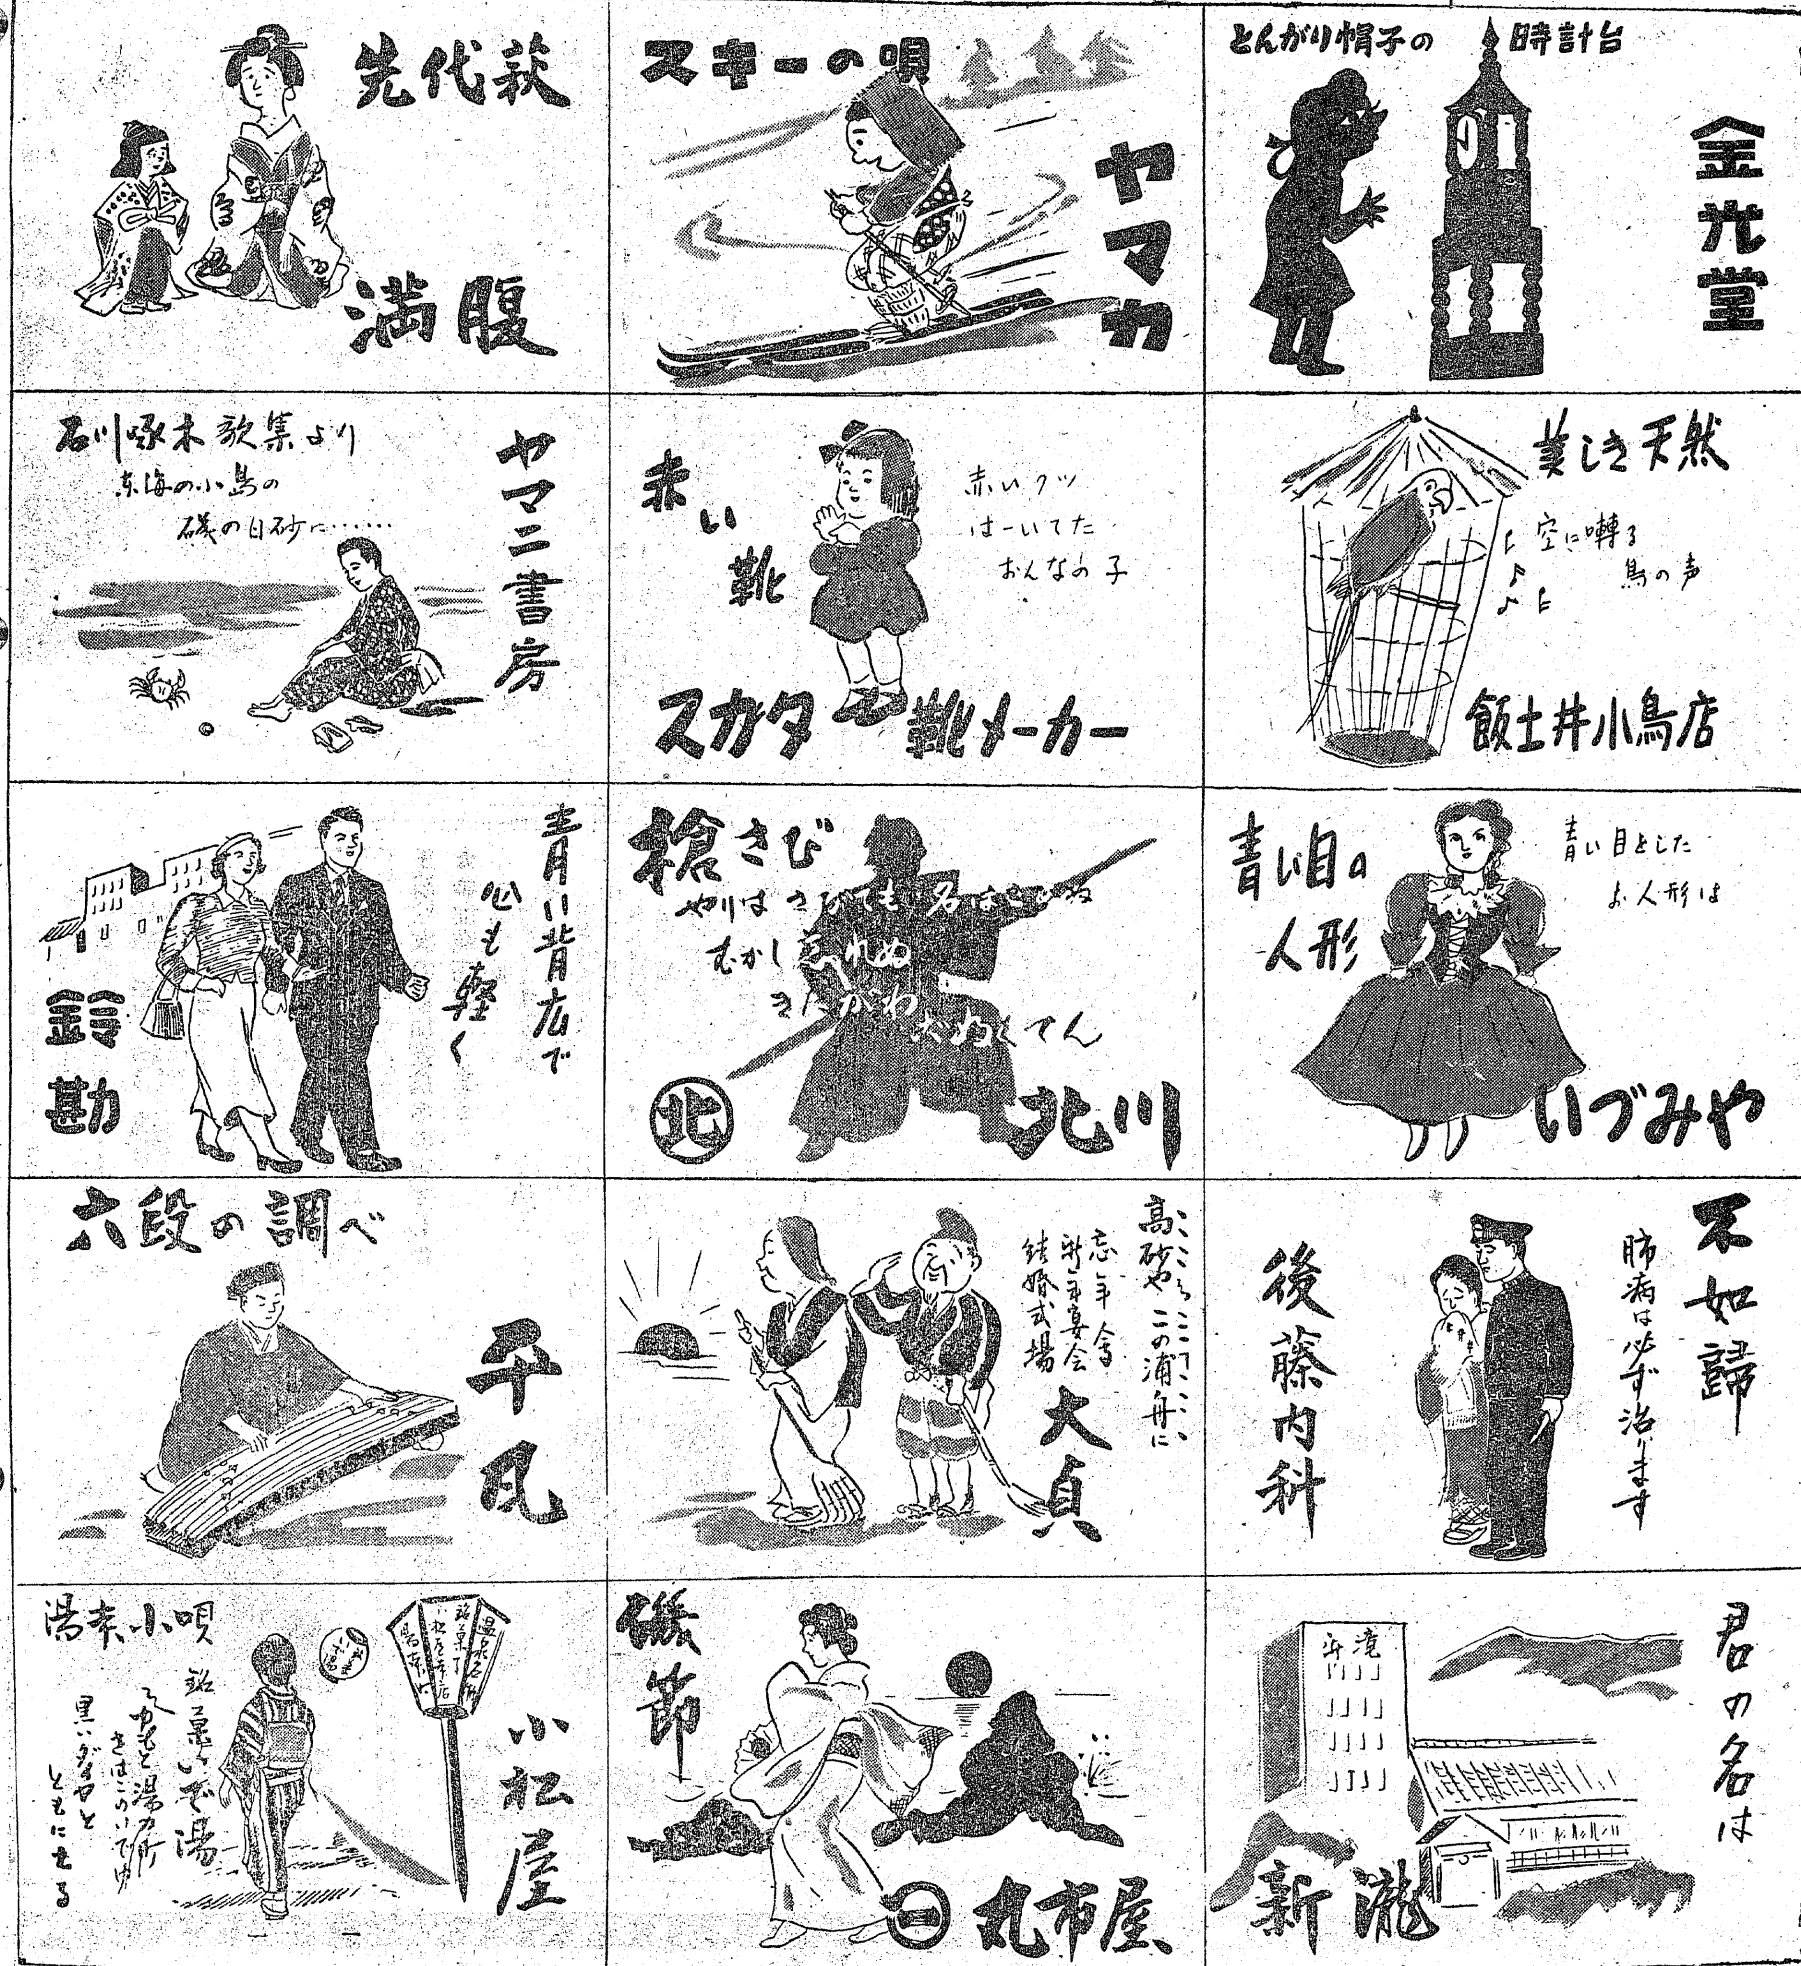 先代萩
満腹
スキーの唄
ヤマカ
とんがり帽子の
時計台
金光堂
石川啄木歌集より
東海の小島の
磯の白砂に……
ヤマニ書房
赤い靴
赤いクツ
はーいてた
おんなの子
スガタ靴メーカー
美しき天然
空に囀る
鳥の声
飯土井小鳥店
青い背広で
心も軽く
鈴勘
槍さび
やりはさびても名はさびぬ
むかし忘れぬ
きたがわ
北
北川
青い目の
人形
青い目をした
お人形は
いづみや
六段の調べ
平凡
高砂や この浦舟に
忘年会
新年宴会
結婚式場
大貞
不如歸
肺病は必ず治ります
後藤内科
湯本小唄
小松屋
黒いダイヤと
ともに出る
磯節
一
丸市屋
君の名は
新滝
新瀧